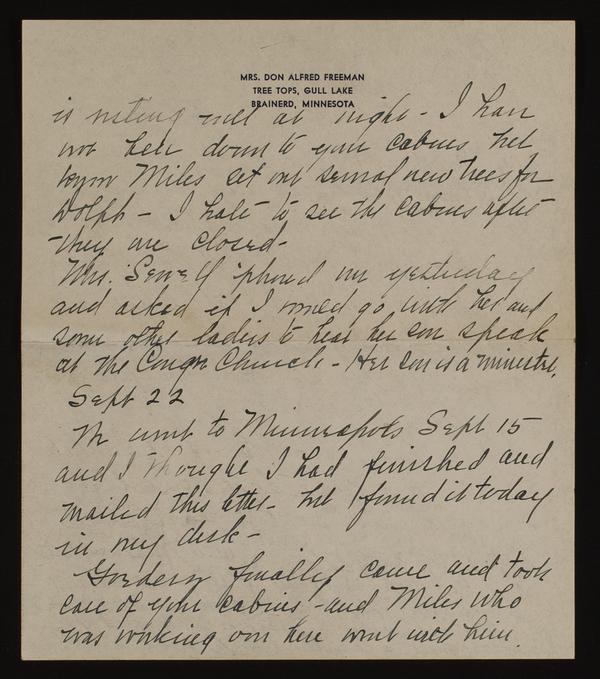 MRS. DON ALFRED FREEMAN
TREE TOPS, GULL LAKE
BRAINERD, MINNESOTA
is resting well at night - I have
not been down to your cabins but
know Miles set out several new trees for
Dolph - I hate to see the cabins after
they are closed -
Mrs. Sewell 'phoned me yesterday
and asked if I would go with her and
some other ladies to hear her son speak
at the Congr Church - Her son is a minister.
Sept 22
We went to Minneapolis Sept 15
and I thought I had finished and
mailed this letter - but found it today
in my desk -
Gordon finally came and took
care of your cabins - and Miles who
was working over here went with him.